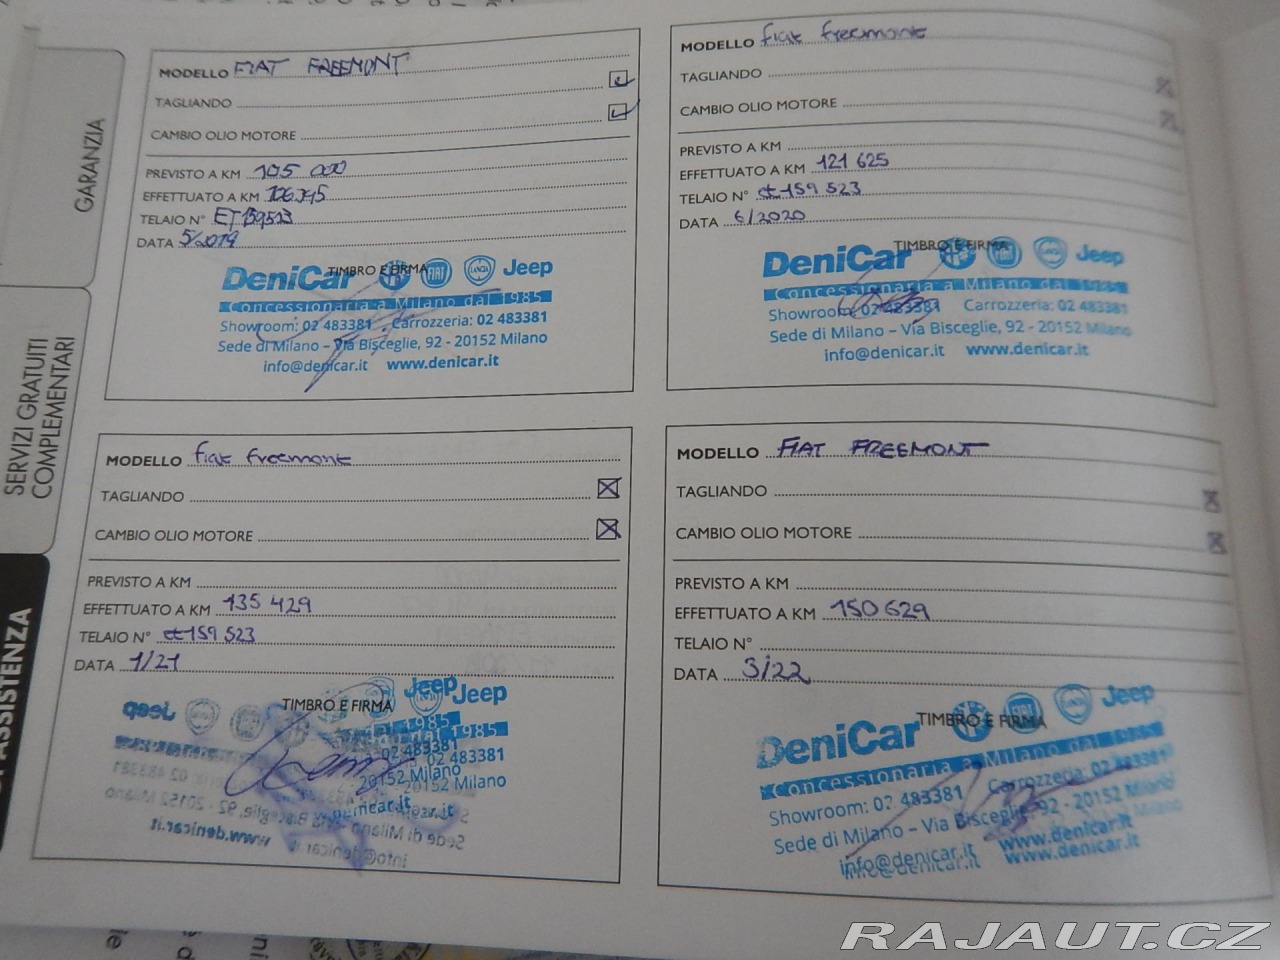 GARANZIA
SERVIZI GRATUITI
COMPLEMENTARI
ASSISTENZA
MODELLO FIAT FREEMONT
TAGLIANDO
CAMBIO OLIO MOTORE
PREVISTO A KM 105 000
EFFETTUATO A KM 106.395
TELAIO N° ET159523
DATA 5/2019
TIMBRO E FIRMA
DeniCar FIAT LANCIA Jeep
Concessionaria a Milano dal 1985
Showroom: 02 483381 Carrozzeria: 02 483381
Sede di Milano – Via Bisceglie, 92 - 20152 Milano
info@denicar.it www.denicar.it
MODELLO fiat freemont
TAGLIANDO
CAMBIO OLIO MOTORE
PREVISTO A KM
EFFETTUATO A KM 121 625
TELAIO N° et 159 523
DATA 6/2020
TIMBRO E FIRMA
DeniCar Jeep
Concessionaria a Milano dal 1985
Showroom: 02 483381 Carrozzeria: 02 483381
Sede di Milano – Via Bisceglie, 92 - 20152 Milano
info@denicar.it www.denicar.it
MODELLO fiat freemont
TAGLIANDO
CAMBIO OLIO MOTORE
PREVISTO A KM
EFFETTUATO A KM 135 429
TELAIO N° et 159 523
DATA 1/21
TIMBRO E FIRMA
Jeep Jeep
dal 1985
dal 1985
02 483381
02 483381
20152 Milano
20152 Milano
denicar.it
MODELLO FIAT FREEMONT
TAGLIANDO
CAMBIO OLIO MOTORE
PREVISTO A KM
EFFETTUATO A KM 150 629
TELAIO N°
DATA 3/22
TIMBRO E FIRMA
DeniCar Jeep
Concessionaria a Milano dal 1985
Showroom: 02 483381 Carrozzeria: 02 483381
Sede di Milano – Via Bisceglie, 92 - 20152 Milano
info@denicar.it www.denicar.it
info@denicar.it www.denicar.it
RAJAUT.CZ